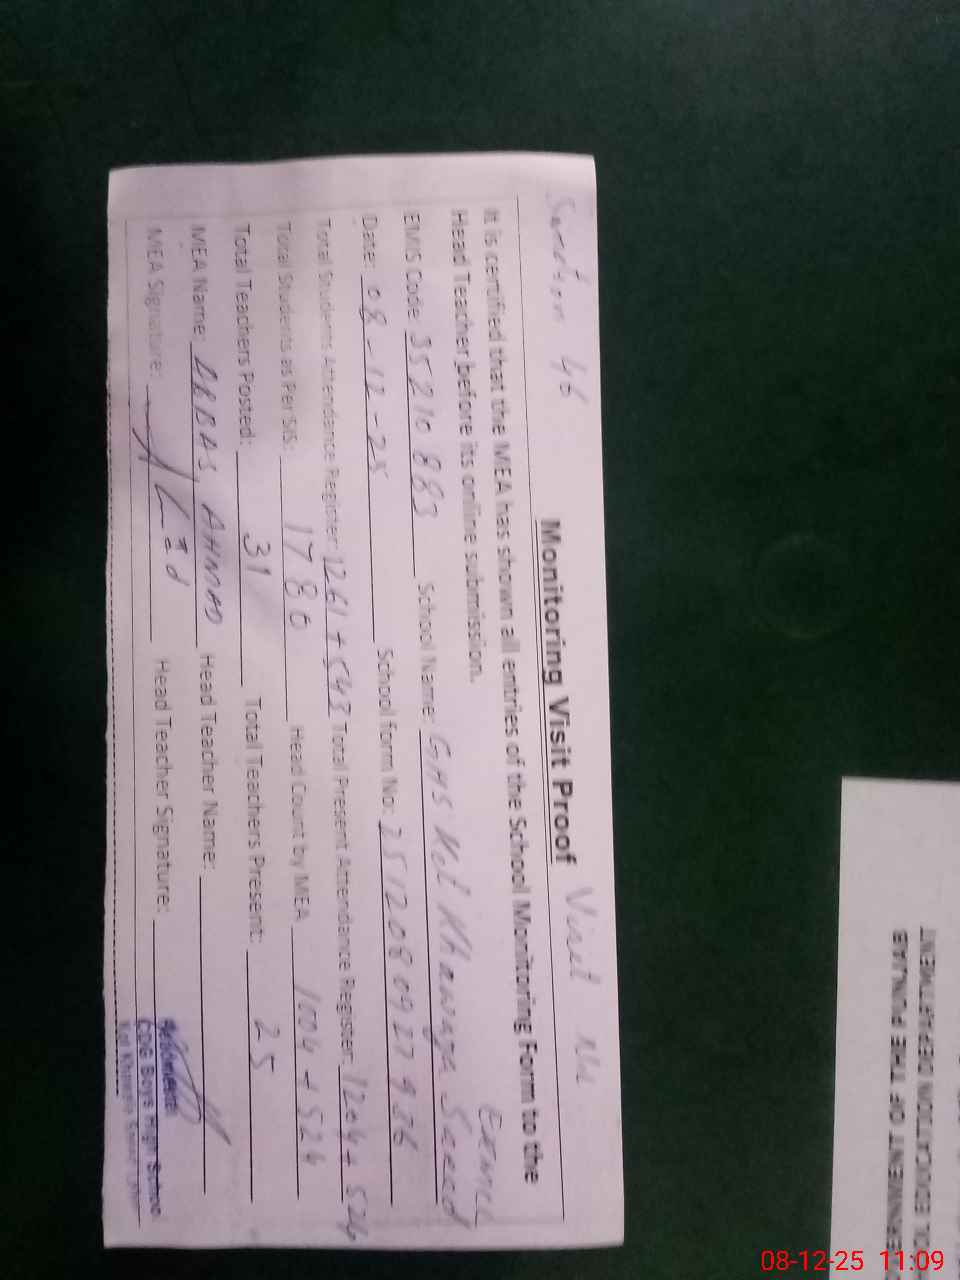 Sanction 46
Monitoring Visit Proof
It is certified that the MEA has shown all entries of the School Monitoring Form to the
Head Teacher before its online submission.
EMIS Code: 35210883 School Name: GHS Kot Khawaja Saeed
Date: 08-12-25 School form No:
Total Students Attendance Register: 1261 + 543 Total Present Attendance Register: 1204 + 524
Total Students as Per SIS: 1780 Head Count by MEA 1004 + 524
Total Teachers Posted: 31 Total Teachers Present: 25
MEA Name: ABBAS AHMAD Head Teacher Name:
MEA Signature: Head Teacher Signature:
CDG Boys High School
Kot Khawaja Saeed
OL EDUCATION DEPARTMENT
ERNMENT OF THE PUNJAB
08-12-25 11:09